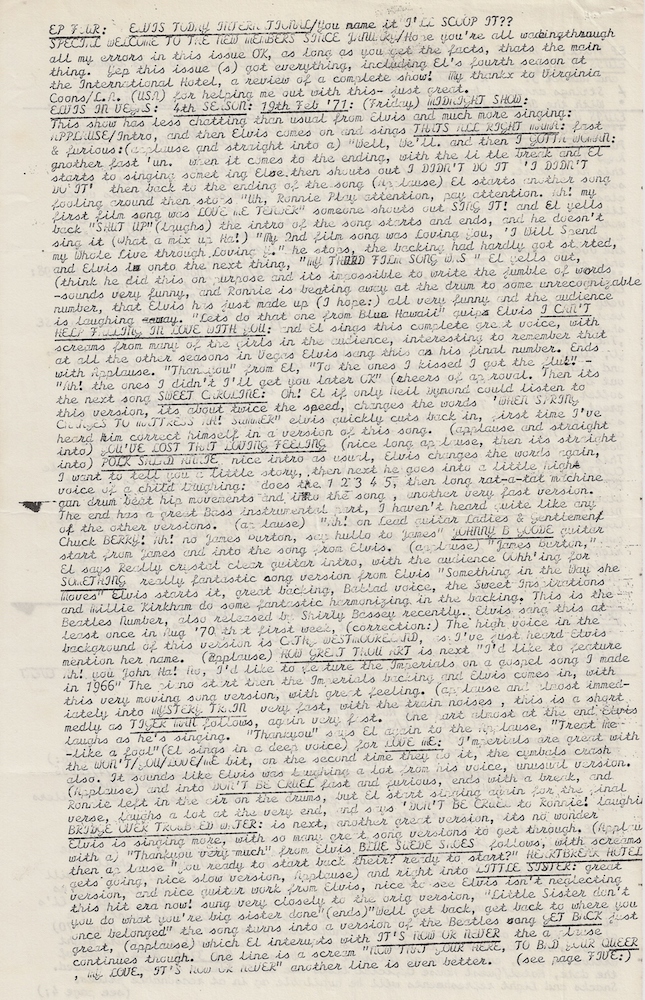 EP FOUR: ELVIS TODAY INTERNATIONAL/You name it I'LL SCOOP IT??
SPECIAL WELCOME TO THE NEW MEMBERS SINCE JANUARY/Hope you're all wadingthrough
all my errors in this issue OK, as long as you get the facts, thats the main
thing. Yep this issue (s) got everything, including El's fourth season at
the International Hotel, a review of a complete show! My thankx to Virginia
Coons/L.A. (USA) for helping me out with this- just great.
ELVIS IN VEGAS: 4th SEASON: 19th Feb '71: (Friday) MIDNIGHT SHOW:
This show has less chatting than usual from Elvis and much more singing:
APPLAUSE/Intro, and then Elvis comes on and sings THATS ALL RIGHT MAMA: fast
& furious:(applause and straight into a) "Well, We'll. and then I GOTTA WOMAN:
another fast 'un. when it comes to the ending, with the little break and El
starts to singing someting Else.then shouts out I DIDN'T DO IT 'I DIDN'T
DO IT' then back to the ending of the song (Applause) El starts another song
fooling around then stops "Uh, Ronnie Play attention, pay attention. Ah! my
first film song was LOVE ME TENDER" someone shouts out SING IT! and El yells
back "SHUT UP"(laughs) the intro of the song starts and ends, and he doesn't
sing it (What a mix up Ha!) "My 2nd film song was Loving you, 'I Will Spend
my Whole Live through,Loving y." he stops, the backing had hardly got started,
and Elvis is onto the next thing, "MY THIRD FILM SONG WAS " El yells out,
(think he did this on purpose and its impossible to write the jumble of words
-sounds very funny, and Ronnie is beating away at the drum to some unrecognizable
number, that Elvis has just made up (I hope:) all very funny and the audience
is laughing away. "Let's do that one from Blue Hawaii" quips Elvis I CAN'T
HELP FALLING IN LOVE WITH YOU: and El sings this complete great voice, with
screams from many of the girls in the audience, interesting to remember that
at all the other seasons in Vegas Elvis sang this as his final number. Ends
with Applause. "Thankyou" from El, "To the ones I kissed I got the flu!!" -
"Ah! the ones I didn't I'll get you later OK" (cheers of approval. Then its
the next song SWEET CAROLINE: Oh! El if only Neil Dymond could listen to
this version, its about twice the speed, changes the words 'WHEN SPRING
CHANGES TO MATTRESS AH! SUMMER" elvis quickly cuts back in, first time I've
heard him correct himself in a version of this song. (applause and straight
into) YOU'VE LOST THAT LOVING FEELING (nice long applause, then its straight
into) POLK SALAD ANNIE nice intro as usual, Elvis changes the words again,
I want to tell you a little story, then next he goes into a little hight
voice of a child laughing: does the 1 2 3 4 5, then long rat-a-tat machine
gun drum beat hip movements and into the song , another very fast version.
The end has a great Bass instrumental part, I haven't heard quite like any
of the other versions. (applause) "Ah! on Lead guitar Ladies & Gentlemen
Chuck BERRY! Ah! no James Burton, say hullo to James" JOHNNY B GOODE guitar
start from James and into the song from Elvis. (applause) "James Burton,"
El says Really crystal clear guitar intro, with the audience Oohh'ing for
SOMETHING really fantastic song version from Elvis "Something in the Way she
Moves" Elvis starts it, great backing, Ballad voice, the Sweet Inspirations
and Millie Kirkham do some fantastic harmonizing in the backing. This is the
Beatles Number, also released by Shirly Bassey recently. Elvis sang this at
least once in Aug '70 that first week, (correction:) The high voice in the
background of this version is CATHY WESTMORELAND, as I've just heard Elvis
mention her name. (Applause) HOW GREAT THOU ART is next "I'd like to feature
Ah! you John Ha! No, I'd like to feature the Imperials on a gospel song I made
in 1966" The piano start then the Imperials backing and Elvis comes in, with
this very moving song version, with great feeling. (applause and almost immed-
iately into MYSTERY TRAIN very fast, with the train noises , this is a short
medly as TIGER MAN follows, again very fast. One part almost at the end Elvis
laughs as he's singing. "Thankyou" says El again to the Applause, "Treat Me
-like a fool"(El sings in a deep voice) for LOVE ME: I'mperials are great with
the WON'T/YOU/LOVE/ME bit, on the second time they do it, the cymbals crash
also. It sounds like Elvis was laughing a lot from his voice, unusual version.
(Applause) and into DON'T BE CRUEL fast and furious, ends with a break, and
Ronnie left in the air on the drums, but El start singing again for the final
verse, laughs a lot at the very end, and says 'DON'T BE CRUEL to Ronnie! laughi
BRIDGE OVER TROUBLED WATER: is next, another great version, its no wonder
Elvis is singing more, with so many great song versions to get through. (Applau
with a) "Thankyou very much" from Elvis BLUE SUEDE SHOES follows, with screams
then applause "you ready to start back their? ready to start?" HEARTBREAK HOTEL
gets going, nice slow version, Applause) and right into LITTLE SISTER: great
version, and nice guitar work from Elvis, nice to see Elvis isn't neglecting
this hit era now! sung very closely to the orig version, "Little Sister don't
you do what you're big sister done"(ends)"Well get back, get back to where you
once belonged" the song turns into a version of the Beatles song GET BACK just
great, (applause) which El interupts with IT'S NOW OR NEVER the applause
continues though. One line is a scream "NOW THAT YOUR HERE, TO BAD YOUR QUEER
, MY LOVE, IT'S NOW OR NEVER" another line is even better. (see page FIVE:)